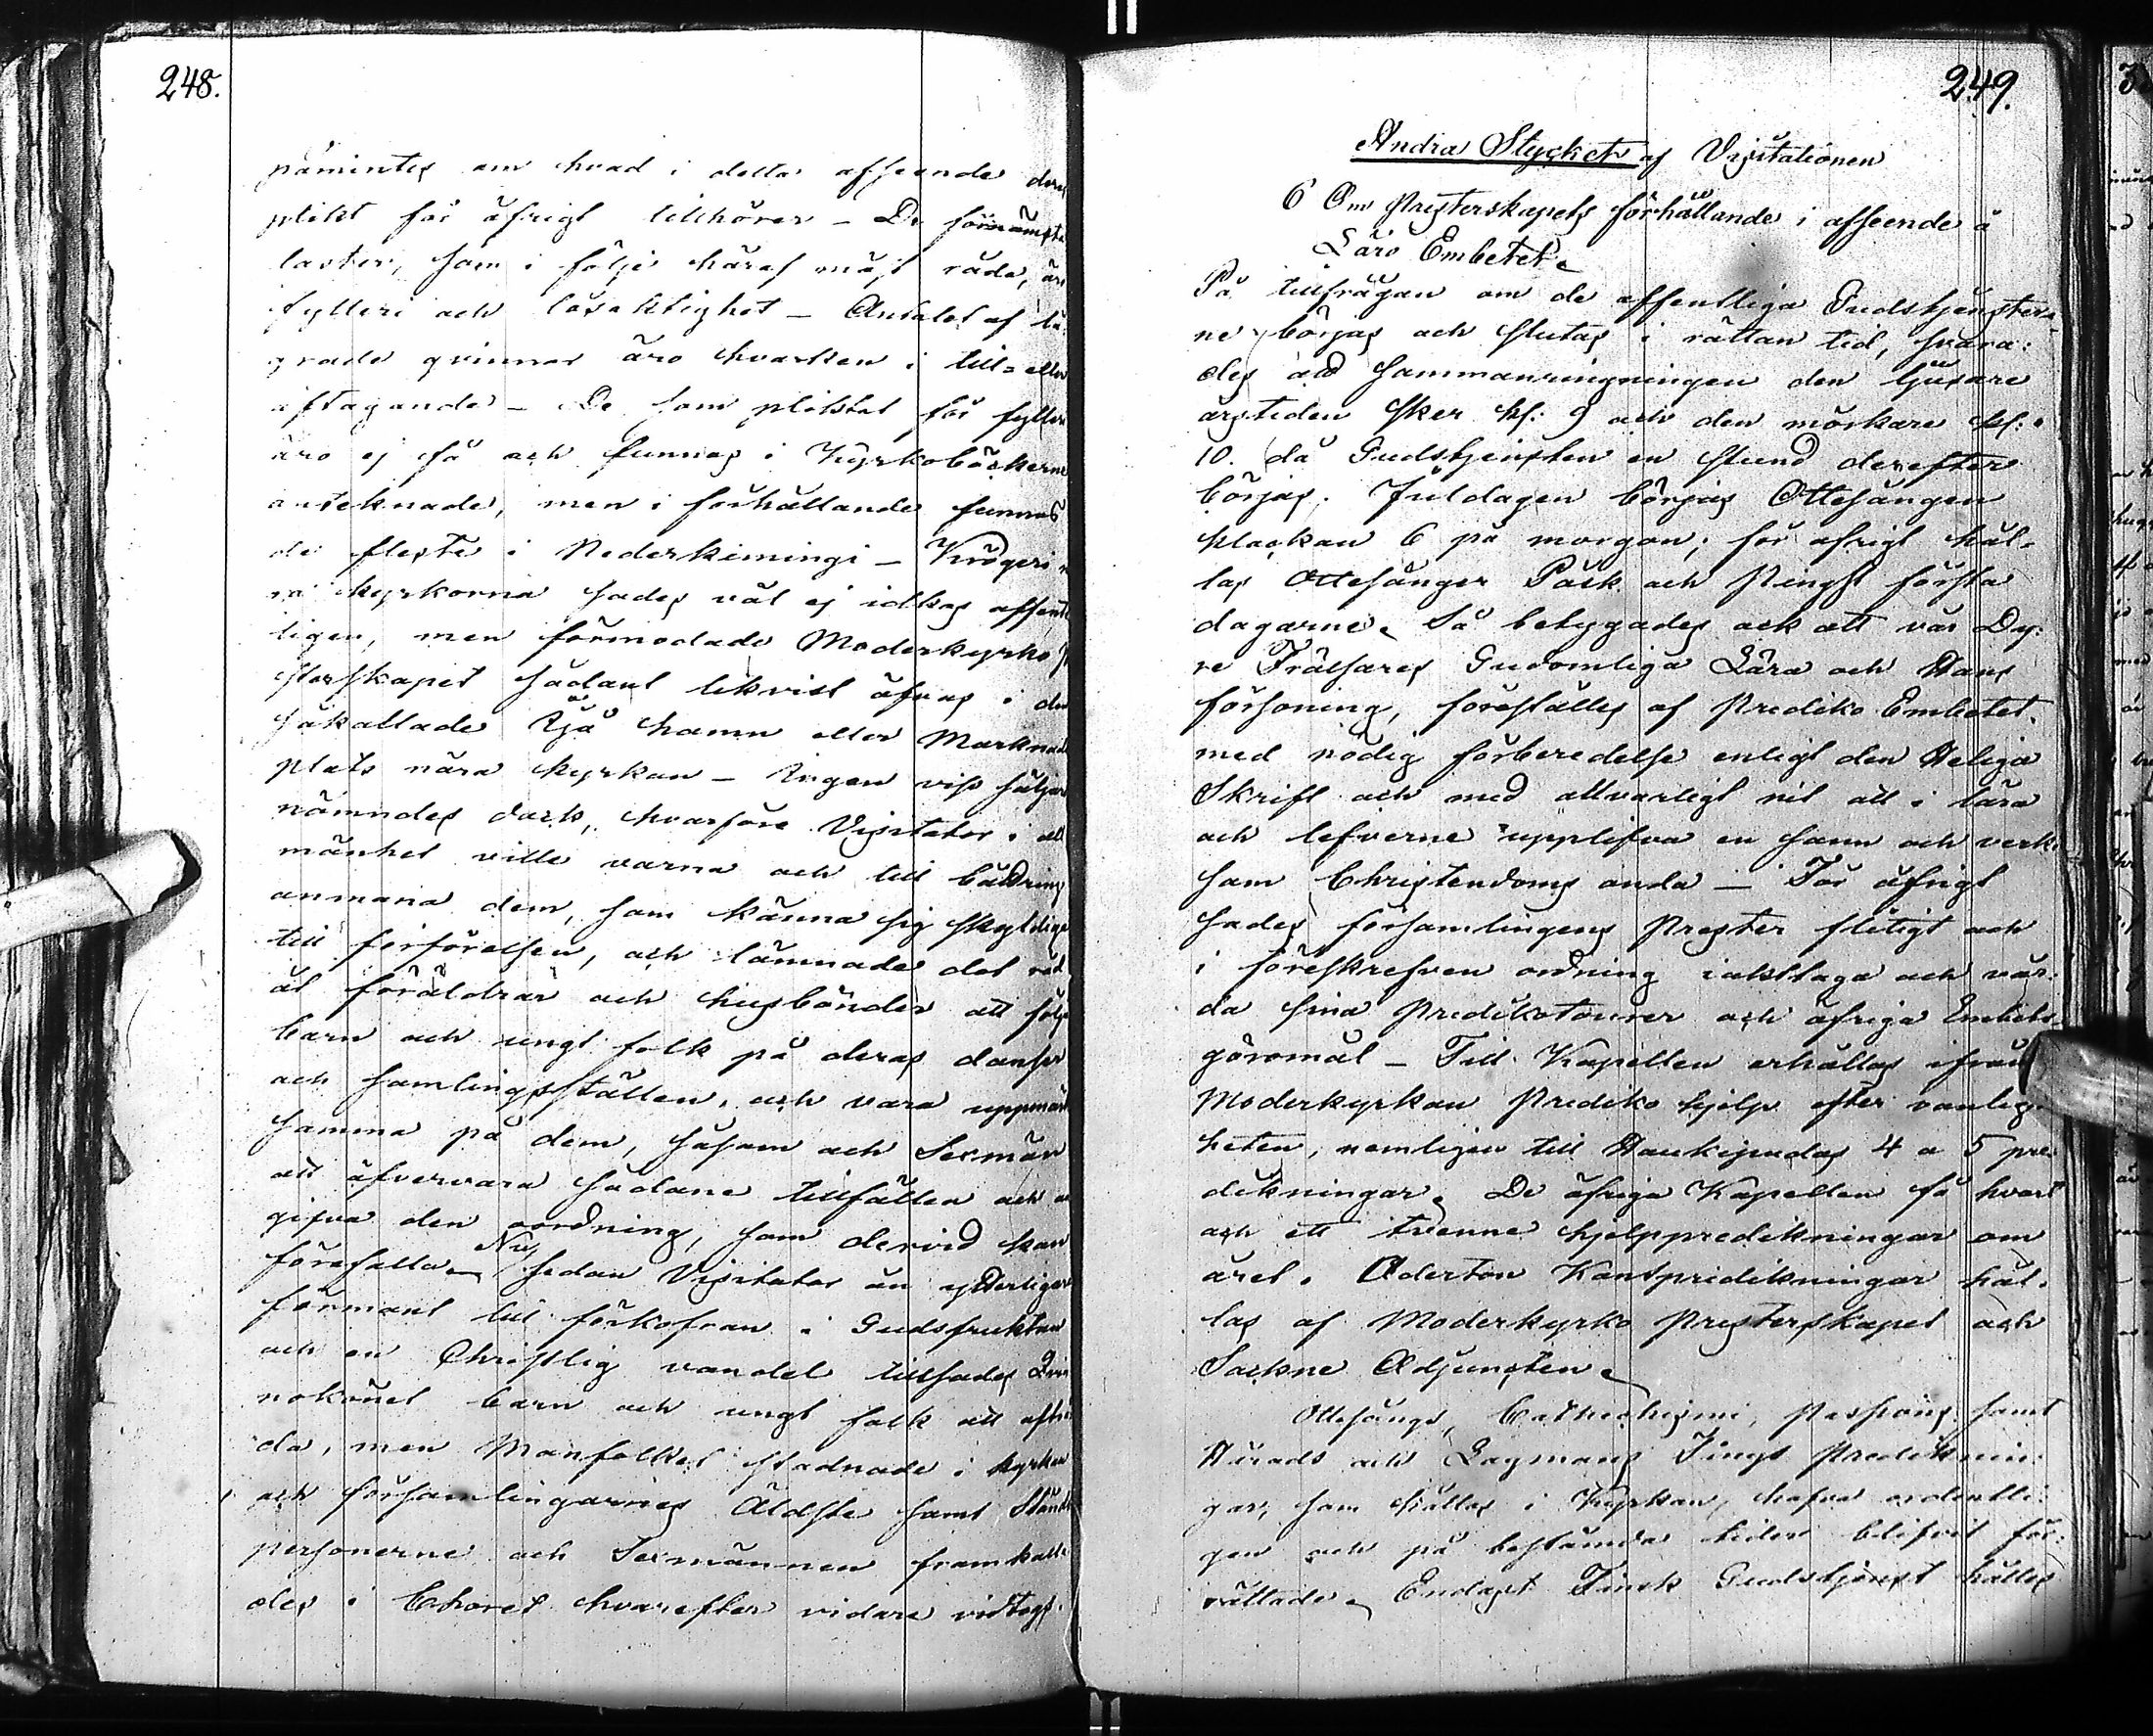 248.
påmintes om hvad i detta afseende deras
plikt för öfrigt tillhörer – De förnämsta
laster, som i följe häraf måst råda, är
fylleri och lösaktighet – Antalet af lä-
grade qvinnor äro hvarken i till- eller
aftagande – De som pliktat för fylleri
äro ej få och funnos i Kyrkoböckerne
anteknade, men i förhållande funnos
de fleste i Nederkimingi – Krögeri
rå kyrkorna sades väl ej idkas offent
ligen, men förmodade Moderkyrko
sterskapet sådant likvist öfvas i den
såkallade Ijå hamn eller Marknads
plats nära kyrkan – Ingen viss säljare
nämndes dock, hvarföre Visitator i all
mänhet ville varna och till bättring
anmana dem, som känna sig skyldige
till förförelsen, och lämnade det råd
åt föräldrar och husbönder att följa
barn och ungt folk på deras danser
och samlingsställen, och vara uppmärk
samma på dem, såsom och Sexmän
att öfvervara sådane tillfällen och
gifva den oordning, som dervid kan
förefalla. Nu sedan Visitator än ytterligare
förmant till förkofran i Gudsfruktan
och en Christlig vandel tillsades Qvin
nokönet barn och ungt folk att afträ
da, men Manfolket stadnade i kyrkan
och församlingarnes Äldste samt Stånds
personerne och Sexmännen framkalla
des i Choret hvarefter vidare vidtogs.
249.
Andra Stycket af Visitationen
6 Om Presterskapets förhållande i afseende å
Läro Embetet.
På tillfrågan om de offentliga Gudstjenster-
ne börjas och slutas i rättan tid, svara:
des att sammanringningen den ljusare
årstiden sker kl: 9 och den mörkare kl:
10. då Gudstjensten en stund derefter
börjas. Juldagen börjas Ottesången
klockan 6 på morgon; för öfrigt hål-
las Ottesånger Påsk och Pingst första
dagarne. Så betygades ock att vår Dy:
re Frälsares Gudomliga Lära och Hans
försoning, föreställes af Prediko Embetet
med nödig förberedelse enligt den Heliga
Skrift och med allvarligt nit att i lära
och lefverne upplifva en sann och verk:
sam Christendoms anda – För öfrigt
sades församlingens Prester flitigt och
i föreskrefven ordning iakttaga och vår:
da sina Predikoturer och öfriga Embets
göromål – Till Kapellen erhålles ifrån
Moderkyrkan Prediko hjelp efter vanlig
heten, nemligen till Haukipudas 4 a 5 pre:
dikningar. De öfriga Kapellen få hvart
och ett tvenne hjelppredikningar om
året. Aderton Kantpredikningar hål:
las af Moderkyrko Presterskapet och
Sockne Adjuncten.
Ottesångs, Catechismi, Passions samt
Härads och Lagmans Tings Prediknin:
gar, som hållas i Kyrkan, hafva ordentli:
gen och på bestämda tider blifvit för:
rättade. Endast Finsk Gudstjenst hålles